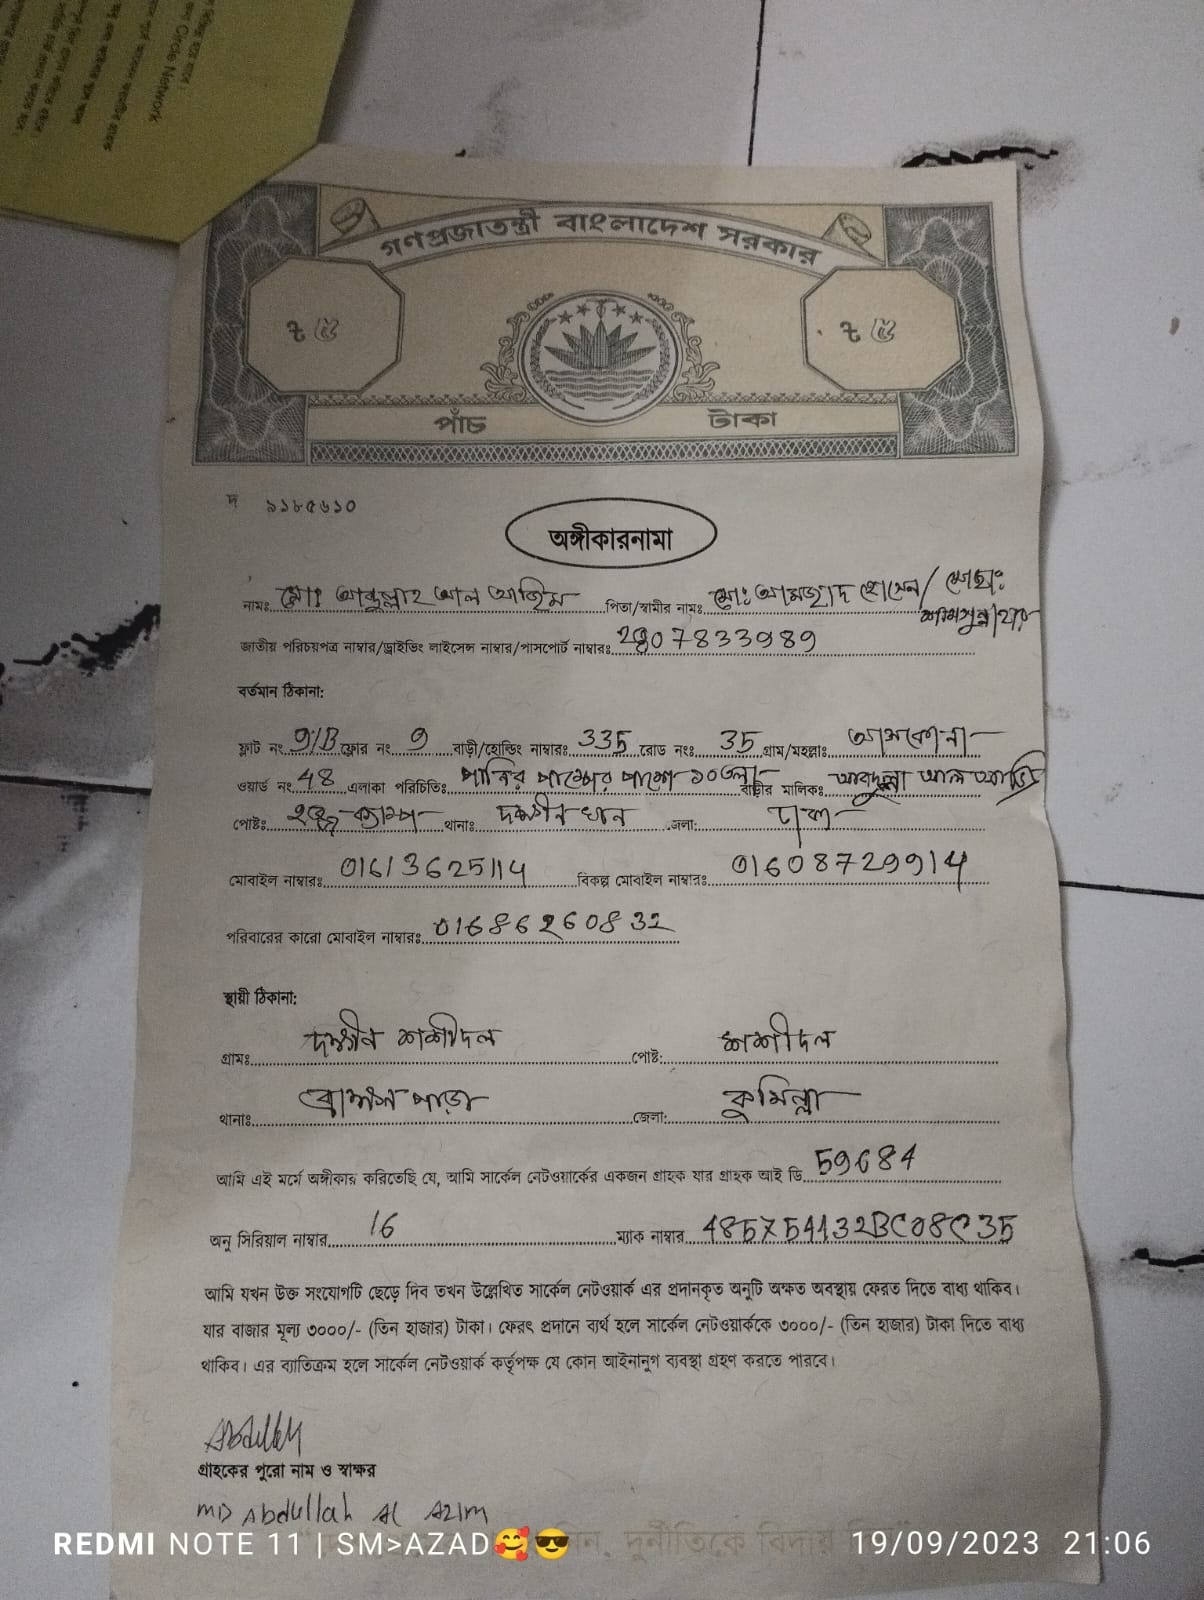 Circle Network
গণপ্রজাতন্ত্রী বাংলাদেশ সরকার
৳ ৫ ৳ ৫
পাঁচ টাকা
দ ৯১৮৫৬১০
অঙ্গীকারনামা
নামঃ মোঃ আব্দুল্লাহ আল আজিম পিতা/স্বামীর নামঃ মোঃ আমজাদ হোসেন/ মোছাঃ
শামসুন্নাহার
জাতীয় পরিচয়পত্র নাম্বার/ড্রাইভিং লাইসেন্স নাম্বার/পাসপোর্ট নাম্বারঃ 7833989
বর্তমান ঠিকানা:
ফ্লাট নং 9/B ফ্লোর নং 9 বাড়ী/হোল্ডিং নাম্বারঃ 335 রোড নংঃ 35 গ্রাম/মহল্লাঃ আশকোনা
ওয়ার্ড নং 48 এলাকা পরিচিতিঃ পানির পাম্পের পাশে ১০তলা বাড়ীর মালিকঃ আবদুল্লা আল আজিম
পোষ্টঃ হজ্জ ক্যাম্প থানাঃ দক্ষীন খান জেলা: ঢাকা
মোবাইল নাম্বারঃ 01613625114 বিকল্প মোবাইল নাম্বারঃ 01608729914
পরিবারের কারো মোবাইল নাম্বারঃ 01686260832
স্থায়ী ঠিকানা:
গ্রামঃ দক্ষীন শশীদল পোষ্ট: শশীদল
থানাঃ ব্রাহ্মন পাড়া জেলা: কুমিল্লা
আমি এই মর্মে অঙ্গীকার করিতেছি যে, আমি সার্কেল নেটওয়ার্কের একজন গ্রাহক যার গ্রাহক আই ডি 59684
অনু সিরিয়াল নাম্বার 16 ম্যাক নাম্বার 485754432BC08C35
আমি যখন উক্ত সংযোগটি ছেড়ে দিব তখন উল্লেখিত সার্কেল নেটওয়ার্ক এর প্রদানকৃত অনুটি অক্ষত অবস্থায় ফেরত দিতে বাধ্য থাকিব।
যার বাজার মূল্য ৩০০০/- (তিন হাজার) টাকা। ফেরৎ প্রদানে ব্যর্থ হলে সার্কেল নেটওয়ার্ককে ৩০০০/- (তিন হাজার) টাকা দিতে বাধ্য
থাকিব। এর ব্যাতিক্রম হলে সার্কেল নেটওয়ার্ক কর্তৃপক্ষ যে কোন আইনানুগ ব্যবস্থা গ্রহণ করতে পারবে।
Abdullah
গ্রাহকের পুরো নাম ও স্বাক্ষর
MD Abdullah Al Azim
দুর্নীতিকে বিদায়
REDMI NOTE 11 | SM>AZAD🥰😎 19/09/2023 21:06